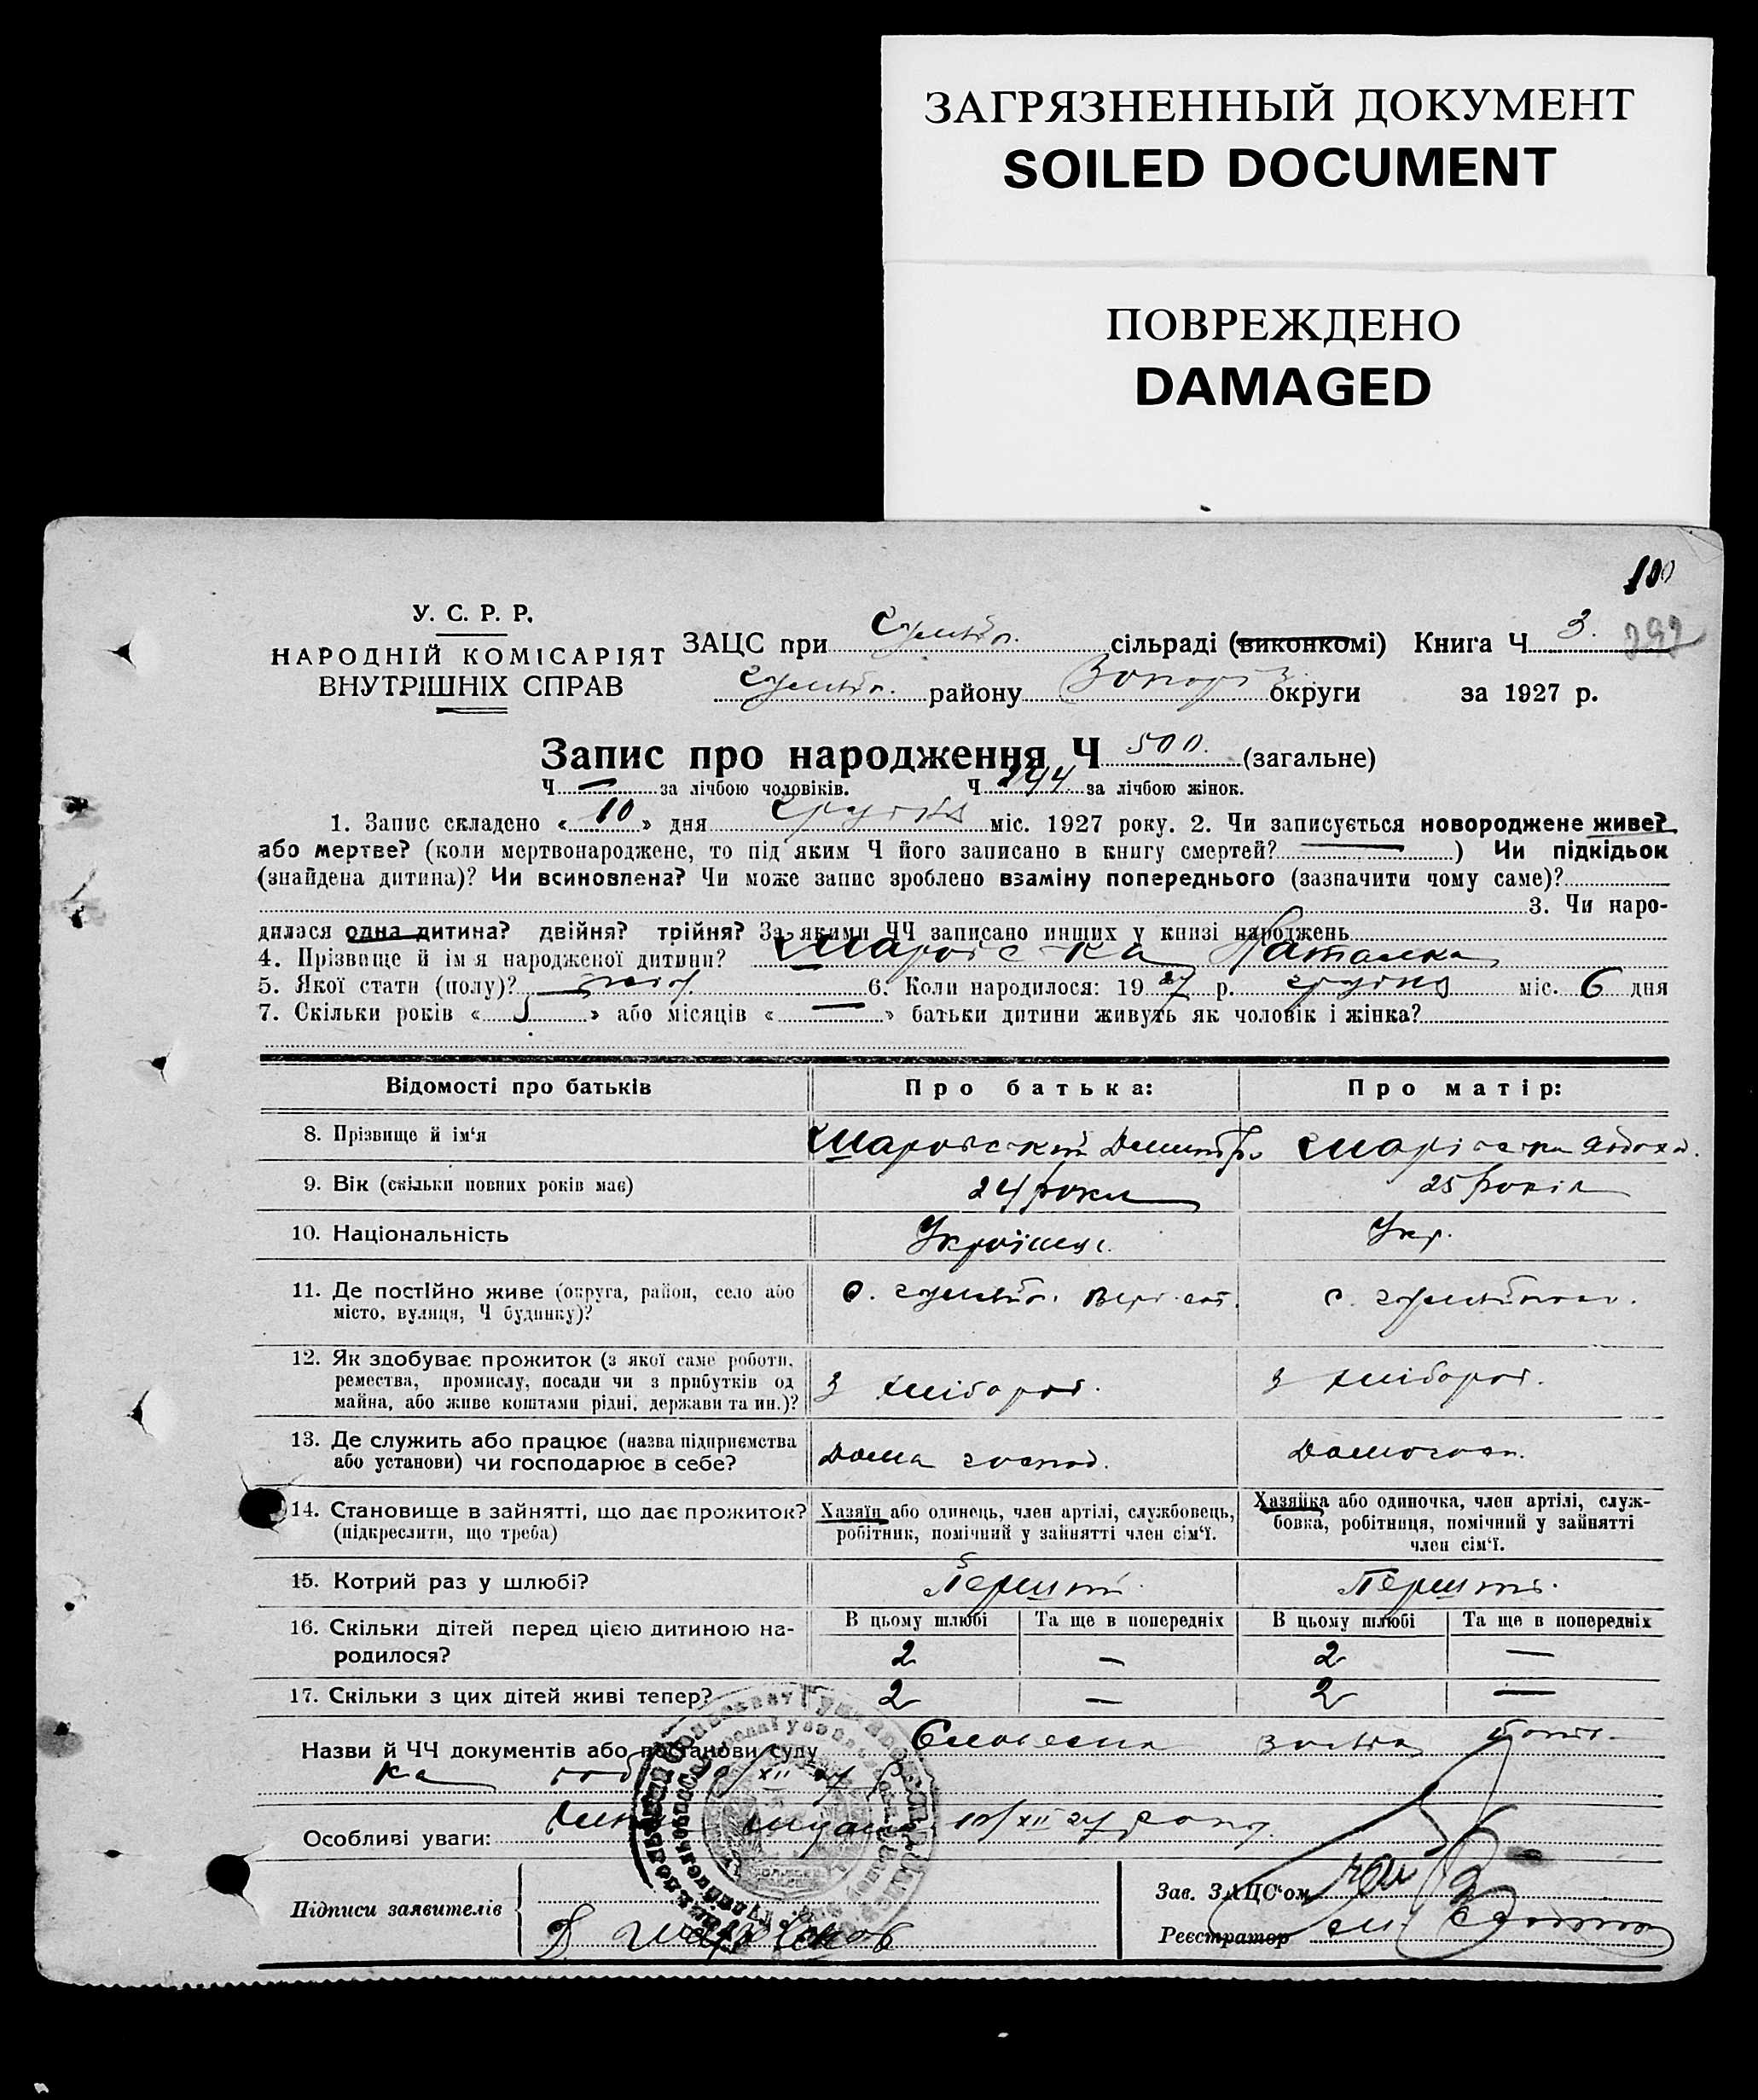 ЗАГРЯЗНЕННЫЙ ДОКУМЕНТ
SOILED DOCUMENT
ПОВРЕЖДЕНО
DAMAGED
100
У. С. Р. Р.
НАРОДНІЙ КОМІСАРІЯТ
ВНУТРІШНІХ СПРАВ
ЗАЦС при сільраді (виконкомі) Книга Ч 3.
району округи за 1927 р.
Запис про народження Ч 500. (загальне)
Ч — за лічбою чоловіків. Ч 244 за лічбою жінок.
1. Запис складено « 10 » дня грудня міс. 1927 року. 2. Чи записується новороджене живе?
або мертве? (коли мертвонароджене, то під яким Ч його записано в книгу смертей? — ) Чи підкідьок
(знайдена дитина)? Чи всиновлена? Чи може запис зроблено взаміну попереднього (зазначити чому саме)?
3. Чи наро-
дилася одна дитина? двійня? трійня? За якими ЧЧ записано инших у книзі народжень
4. Прізвище й ім'я народженої дитини? Шаровська Наталка
5. Якої стати (полу)? 6. Коли народилося: 1927 р. грудня міс. 6 дня
7. Скільки років « » або місяців « — » батьки дитини живуть як чоловік і жінка?
Відомості про батьків Про батька: Про матір:
8. Прізвище й ім'я Шаровський Дмитро Шаровська
9. Вік (скільки повних років має) 24 роки 25 років
10. Національність Українец. Укр.
11. Де постійно живе (округа, район, село або
місто, вулиця, Ч будинку)? с. с.
12. Як здобуває прожиток (з якої саме роботи,
ремества, промислу, посади чи з прибутків од
майна, або живе коштами рідні, держави та ин.)? З хлібороб. З хлібороб.
13. Де служить або працює (назва підприємства
або установи) чи господарює в себе? Дома господ. Домогосп.
14. Становище в зайнятті, що дає прожиток?
(підкреслити, що треба)
Хазяїн або одинець, член артілі, службовець,
робітник, помічний у зайнятті член сім'ї.
Хазяйка або одиночка, член артілі, служ-
бовка, робітниця, помічний у зайнятті
член сім'ї.
15. Котрий раз у шлюбі? Перший. Перший.
16. Скільки дітей перед цією дитиною на-
родилося?
В цьому шлюбі Та ще в попередніх В цьому шлюбі Та ще в попередніх
2 — 2 —
17. Скільки з цих дітей живі тепер? 2 — 2 —
Назви й ЧЧ документів або постанови суду Словесна заява бать-
ка
Особливі уваги: 10/XII 27 року.
Підписи заявителів
Зав. ЗАЦС'ом
Реєстратор